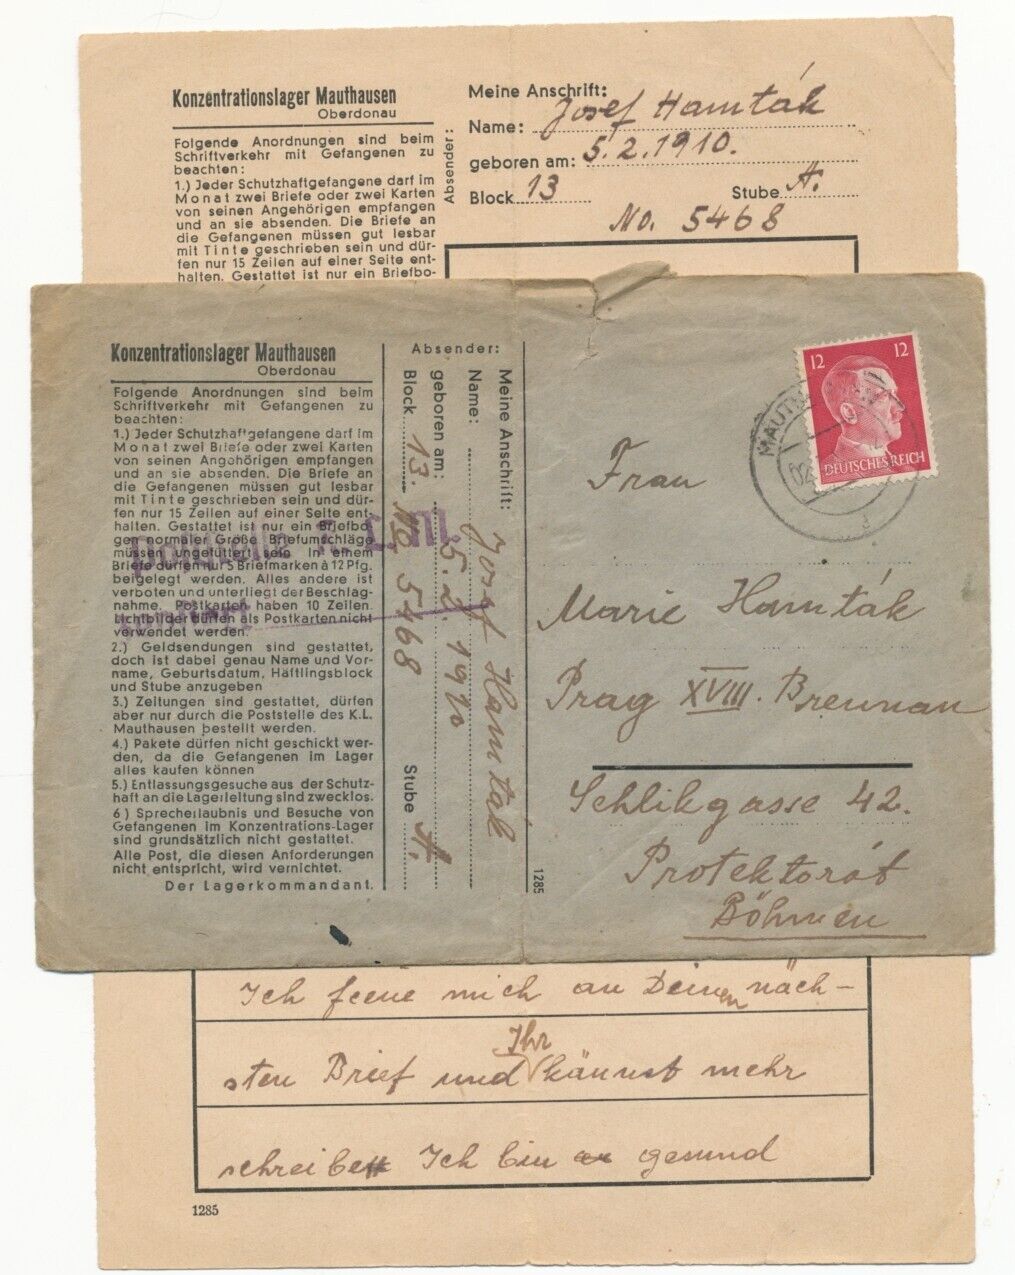 Konzentrationslager Mauthausen
Oberdonau
Folgende Anordnungen sind beim
Schriftverkehr mit Gefangenen zu
beachten:
1.) Jeder Schutzhaftgefangene darf im
Monat zwei Briefe oder zwei Karten
von seinen Angehörigen empfangen
und an sie absenden. Die Briefe an
die Gefangenen müssen gut lesbar
mit Tinte geschrieben sein und dür-
fen nur 15 Zeilen auf einer Seite ent-
halten. Gestattet ist nur ein Briefbo-
Absender:
Meine Anschrift:
Name: Josef Hamták
geboren am: 5.2.1910.
Block 13 Stube A.
No. 5468
Konzentrationslager Mauthausen
Oberdonau
Folgende Anordnungen sind beim
Schriftverkehr mit Gefangenen zu
beachten:
1.) Jeder Schutzhaftgefangene darf im
Monat zwei Briefe oder zwei Karten
von seinen Angehörigen empfangen
und an sie absenden. Die Briefe an
die Gefangenen müssen gut lesbar
mit Tinte geschrieben sein und dür-
fen nur 15 Zeilen auf einer Seite ent-
halten. Gestattet ist nur ein Briefbo-
gen normaler Größe. Briefumschläge
müssen ungefüttert sein. In einem
Briefe dürfen nur 5 Briefmarken à 12 Pfg.
beigelegt werden. Alles andere ist
verboten und unterliegt der Beschlag-
nahme. Postkarten haben 10 Zeilen.
Lichtbilder dürfen als Postkarten nicht
verwendet werden.
2.) Geldsendungen sind gestattet,
doch ist dabei genau Name und Vor-
name, Geburtsdatum, Häftlingsblock
und Stube anzugeben
3.) Zeitungen sind gestattet, dürfen
aber nur durch die Poststelle des K.L.
Mauthausen bestellt werden.
4.) Pakete dürfen nicht geschickt wer-
den, da die Gefangenen im Lager
alles kaufen können
5.) Entlassungsgesuche aus der Schutz-
haft an die Lagerleitung sind zwecklos.
6) Sprecherlaubnis und Besuche von
Gefangenen im Konzentrations-Lager
sind grundsätzlich nicht gestattet.
Alle Post, die diesen Anforderungen
nicht entspricht, wird vernichtet.
Der Lagerkommandant.
Absender:
Meine Anschrift:
Name: Josef Hamták
geboren am: 5.2.1910
Block 13. No. 5468 Stube A.
1285
12 12
DEUTSCHES REICH
Frau
Marie Hamták
Prag XVIII. Breunau
Schlikgasse 42.
Protektorát
Böhmen
Ich freue mich an Deinen näch-
Ihr
sten Brief und kännst mehr
schreiben Ich bin gesund
1285